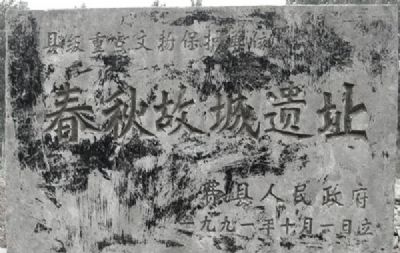 县级重点文物保护单位
春秋故城遗址
费县人民政府
一九九一年十月一日立